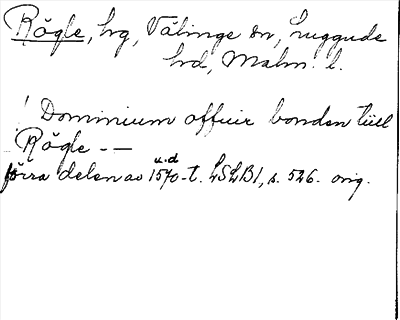 Rögle, hg, Välinge sn, Luggude
hd, Malm. l.
! Dominium offuir bonden tiill
Rögle - —
u.d
förra delen av 1570-t. LSLB1, s. 526. orig.